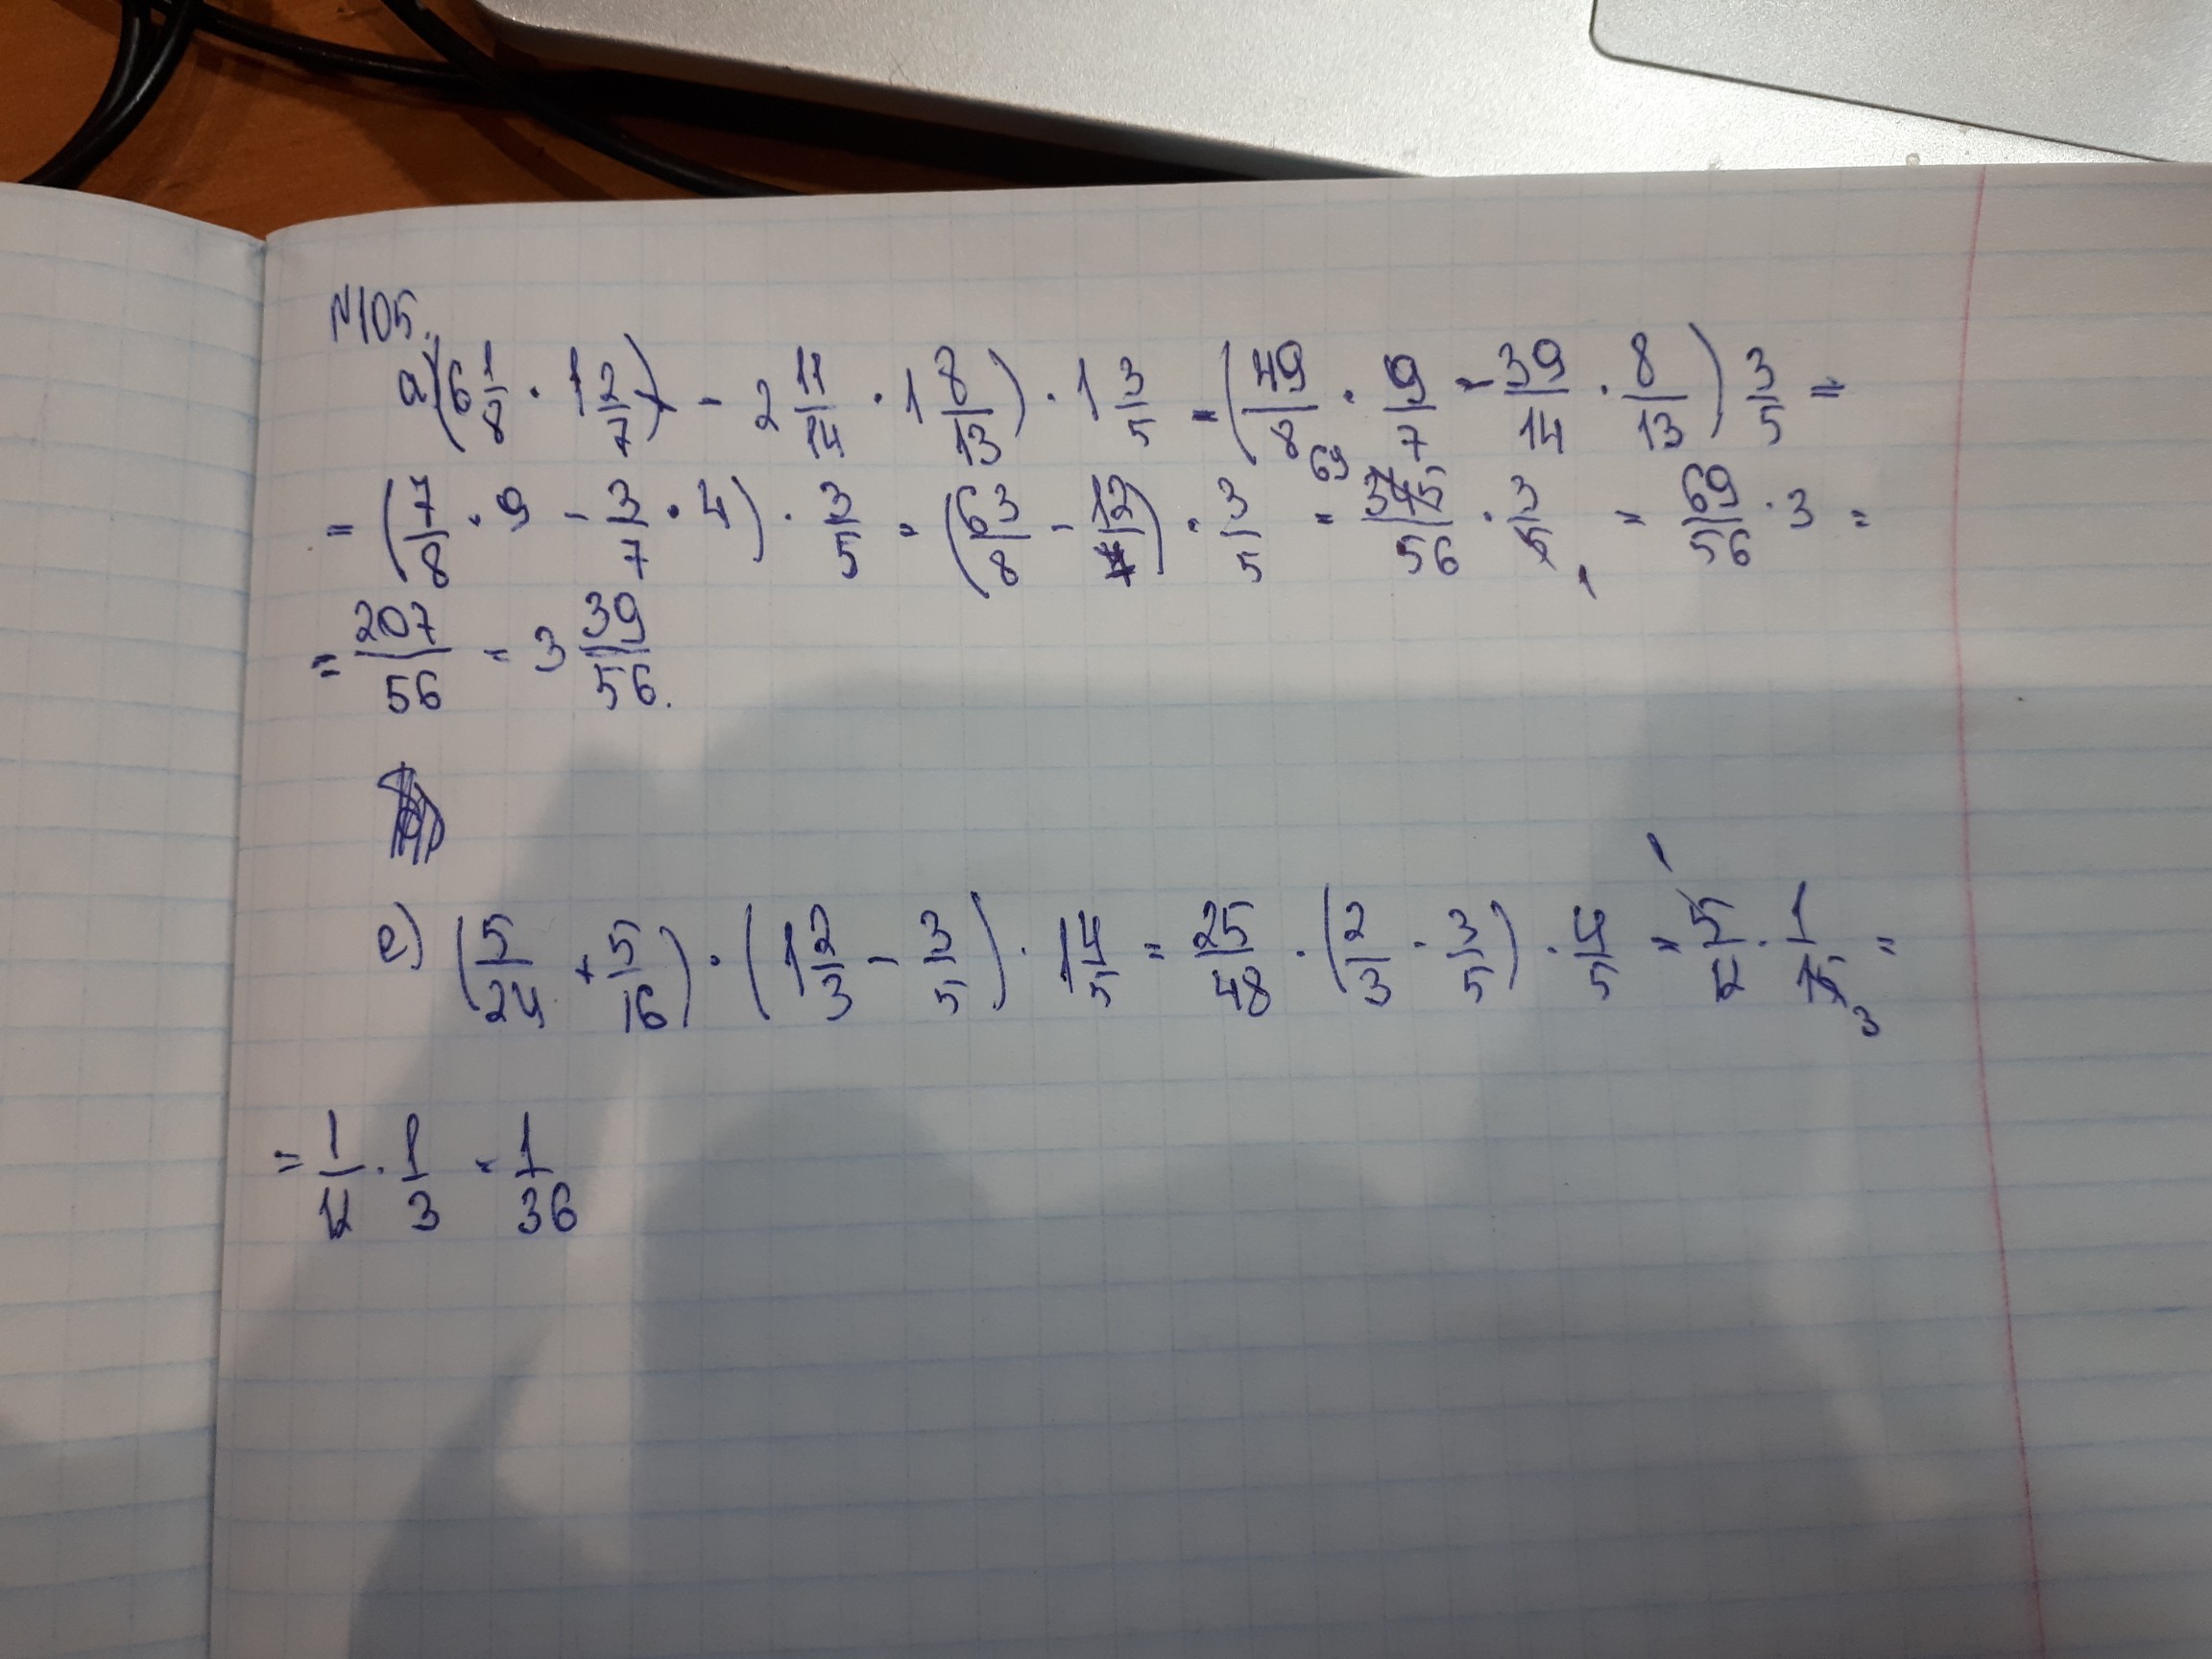 N105.
а) (6 1/8 · 1 2/7) - 2 11/14 · 1 8/13) · 1 3/5 = (49/8 · 9/7 - 39/14 · 8/13) 3/5 =
= (7/8 · 9 - 3/7 · 4) · 3/5 = (63/8 - 12/7) · 3/5 = 69 345/56 · 3/5 1 = 69/56 · 3 =
= 207/56 = 3 39/56.
е) (5/24 + 5/16) · (1 2/3 - 3/5) · 1 4/5 = 25/48 · (2/3 - 3/5) · 4/5 = 1 5/12 · 1/15 3 =
= 1/12 · 1/3 = 1/36